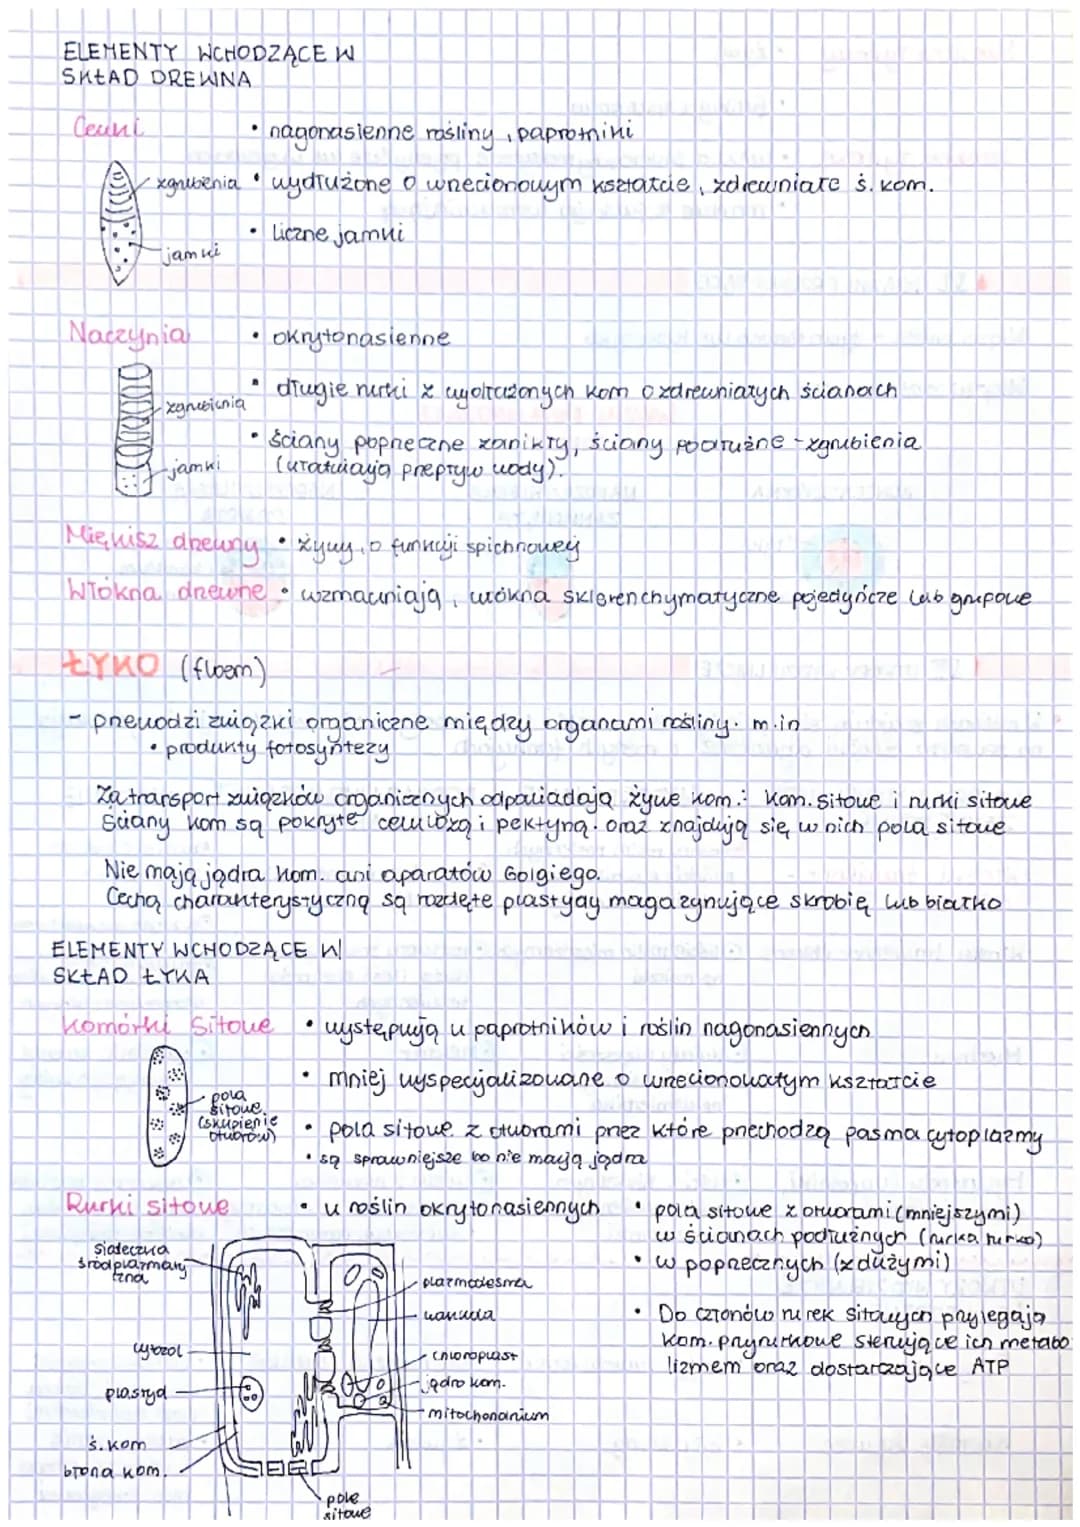 ELEMENTY WCHODZĄCE W
SKŁAD DREWNA
Cewki
• nagonasienne rośliny, paprotniki
zgrubienia
• wydłużone o wrzecionowym kształcie, zdrewniałe ś. kom.
• liczne jamki
jamki
Naczynia
• okrytonasienne
• długie rurki z wydłużonych kom o zdrewniałych ścianach
zgrubienia
• ściany poprzeczne zanikły, ściany podłużne - zgrubienia
(ułatwiają przepływ wody).
jamki
Miękisz drewny • żywy, o funkcji spichrzowej
Włókna drewne • wzmacniają, włókna sklerenchymatyczne pojedyńcze lub grupowe
ŁYKO (floem)
- przewodzi związki organiczne między organami rośliny. m.in
• produkty fotosyntezy
Za transport związków organicznych odpowiadają żywe kom.: kom. sitowe i rurki sitowe
Ściany kom są pokryte celulozą i pektyną. oraz znajdują się w nich pola sitowe
Nie mają jądra kom. ani aparatów Golgiego.
Cechą charakterystyczną są rozdęte plastydy magazynujące skrobię lub białko
ELEMENTY WCHODZĄCE W
SKŁAD ŁYKA
Komórki Sitowe
• występują u paprotników i roślin nagonasiennych
• mniej wyspecjalizowane o wrzecionowatym kształcie
pola
sitowe
(skupienie
otworów)
• pola sitowe z otworami przez które przechodzą pasma cytoplazmy
• są sprawniejsze bo nie mają jądra
Rurki sitowe
• u roślin okrytonasiennych
• pola sitowe z otworami (mniejszymi)
w ścianach podłużnych (rurka rurka)
• w poprzecznych (z dużymi)
• Do członów rurek sitowych przylegają
kom. przyrurkowe sterujące ich metabo
lizmem oraz dostarczające ATP
siateczka
śródplazmaty
czna
cytozol
plastyd
ś. kom
błona kom.
plazmodesma
wakuola
chloroplast
jądro kom.
mitochondrium
pole
sitowe